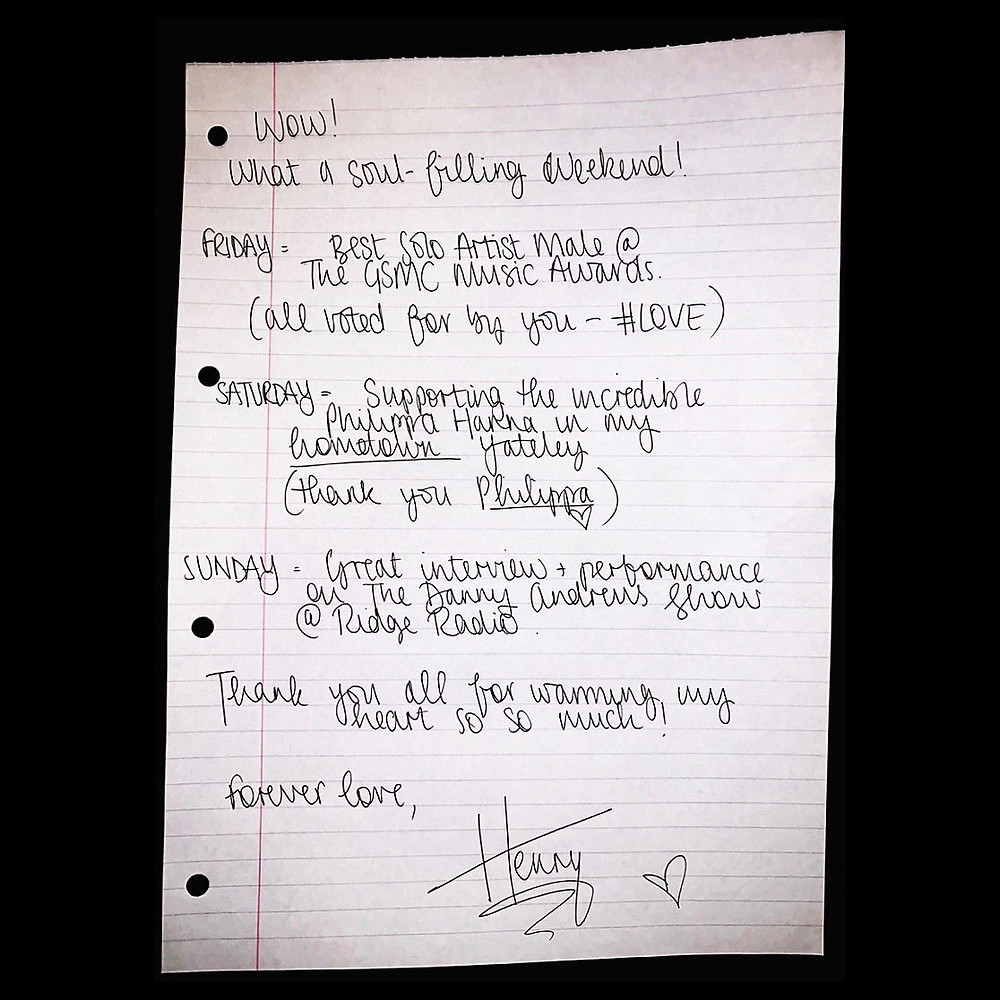 Wow!
What a soul-filling Weekend!
FRIDAY = Best Solo Artist Male @
The GSMC Music Awards.
(all voted for by you - #LOVE)
SATURDAY = Supporting the incredible
Philippa Hanna in my
hometown Yateley
(thank you Philippa)
SUNDAY = Great interview + performance
on The Danny Andrews Show
@ Ridge Radio.
Thank you all for warming my
heart so so much!
forever love,
Henry